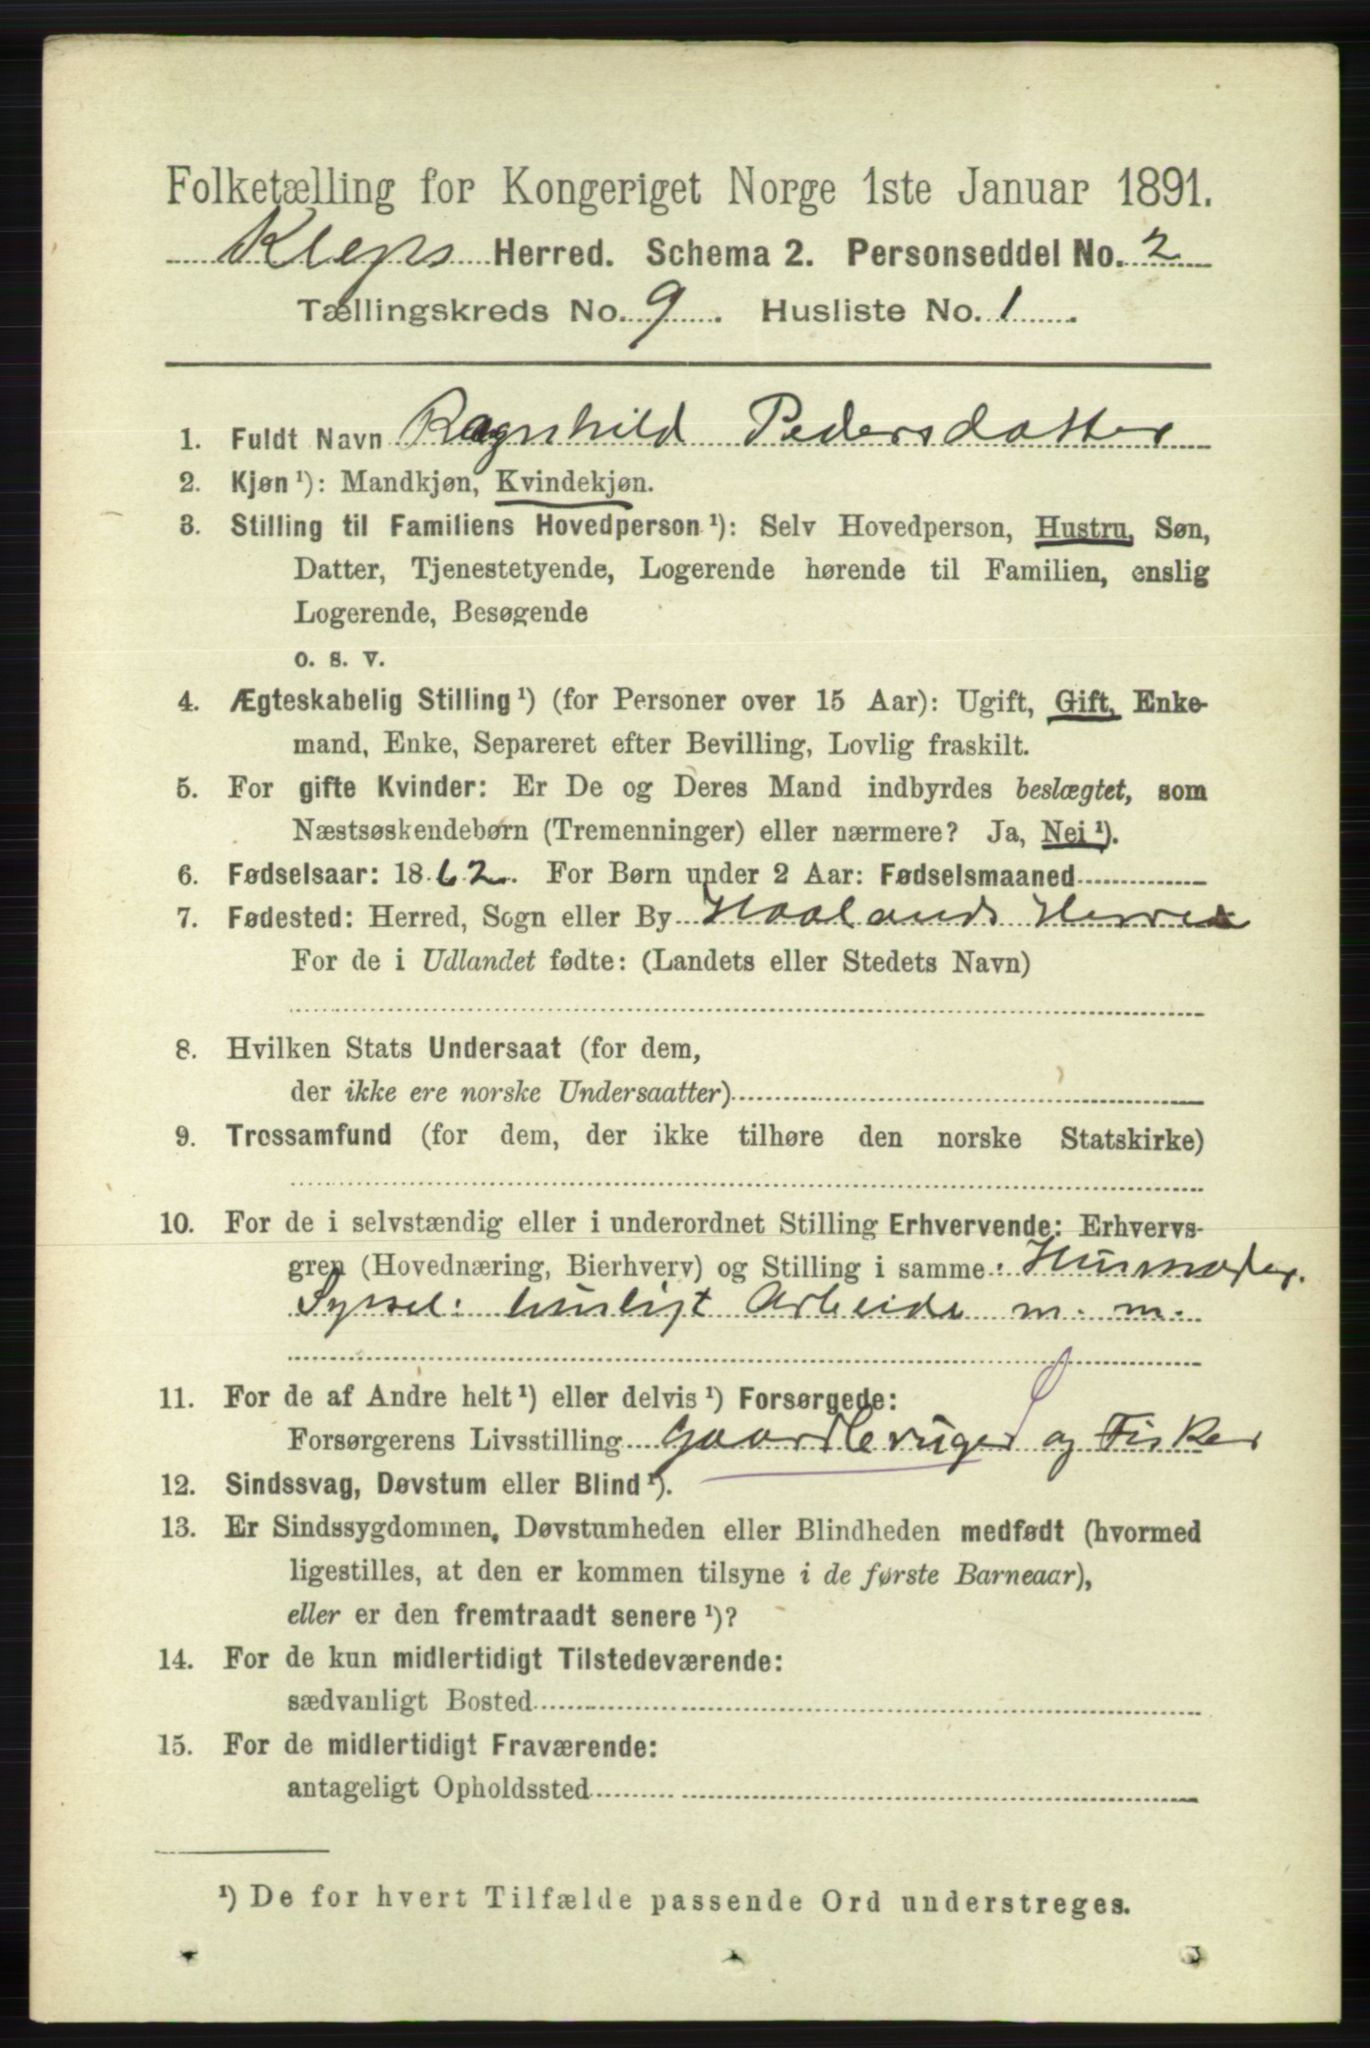 Folketælling for Kongeriget Norge 1ste Januar 1891.
Kleps Herred. Schema 2. Personseddel No. 2
Tællingskreds No. 9. Husliste No. 1.
1. Fuldt Navn Ragnhild Pedersdatter
2. Kjøn ¹): Mandkjøn, Kvindekjøn.
3. Stilling til Familiens Hovedperson ¹): Selv Hovedperson, Hustru, Søn,
Datter, Tjenestetyende, Logerende hørende til Familien, enslig
Logerende, Besøgende
o. s. v.
4. Ægteskabelig Stilling ¹) (for Personer over 15 Aar): Ugift, Gift, Enke-
mand, Enke, Separeret efter Bevilling, Lovlig fraskilt.
5. For gifte Kvinder: Er De og Deres Mand indbyrdes beslægtet, som
Næstsøskendebørn (Tremenninger) eller nærmere? Ja, Nei ¹).
6. Fødselsaar: 1862. For Børn under 2 Aar: Fødselsmaaned
7. Fødested: Herred, Sogn eller By Haalands Herred
For de i Udlandet fødte: (Landets eller Stedets Navn)
8. Hvilken Stats Undersaat (for dem,
der ikke ere norske Undersaatter)
9. Trossamfund (for dem, der ikke tilhøre den norske Statskirke)
10. For de i selvstændig eller i underordnet Stilling Erhvervende: Erhvervs-
gren (Hovednæring, Bierhverv) og Stilling i samme: Husmoder.
Syssel: huuligt Arbeide m. m.
11. For de af Andre helt ¹) eller delvis ¹) Forsørgede:
Forsørgerens Livsstilling Gaardbruger og Fisker
12. Sindssvag, Døvstum eller Blind ¹).
13. Er Sindssygdommen, Døvstumheden eller Blindheden medfødt (hvormed
ligestilles, at den er kommen tilsyne i de første Barneaar),
eller er den fremtraadt senere ¹)?
14. For de kun midlertidigt Tilstedeværende:
sædvanligt Bosted
15. For de midlertidigt Fraværende:
antageligt Opholdssted
¹) De for hvert Tilfælde passende Ord understreges.